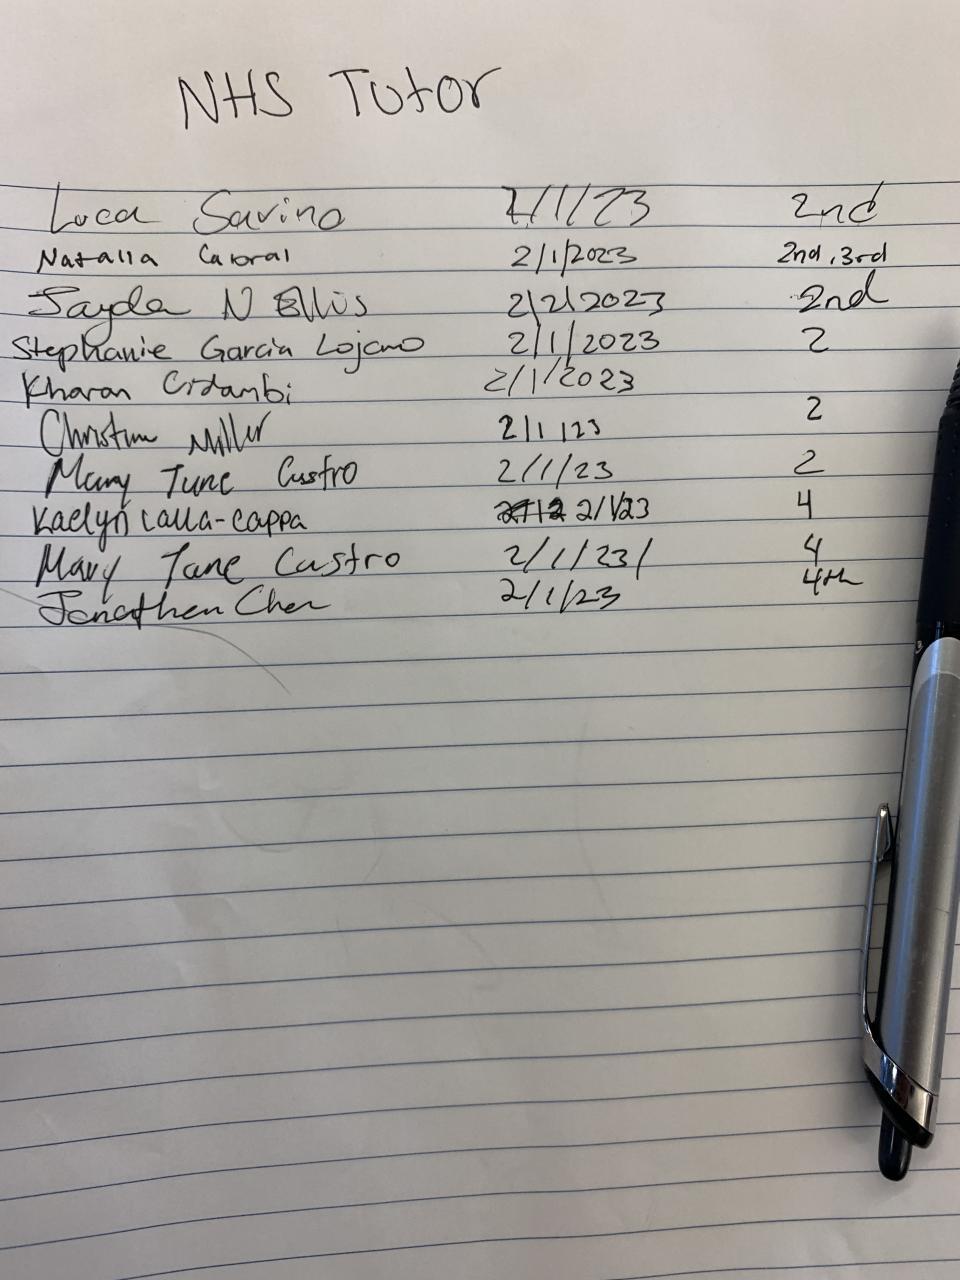 NHS Tutor
Luca Savino 2/1/23 2nd
Natalia Cabral 2/1/2023 2nd, 3rd
Jayda N Ellis 2/2/2023 2nd
Stephanie Garcia Lojano 2/1/2023 2
Kharan Cidambi 2/1/2023
Miller 2/1/23 2
Mary Jane Castro 2/1/23 2
Kaelyn Calla-cappa 2/1/23 4
Mary Jane Castro 2/1/23/ 4
Jonathen Chen 2/1/23 4th